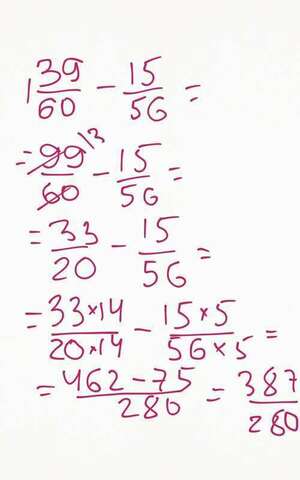 1 39/60 - 15/56 =
= 99/60 13 - 15/56 =
= 33/20 - 15/56 =
= 33×14/20×14 - 15×5/56×5 =
= 462-75/280 = 387/280